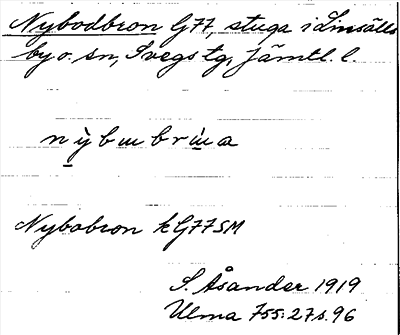 Nybodbron G77, stuga i Linsälls
by o. sn, Svegs tg, Jämtl. l.
nybɯbrɯ̀a
Nybobron kG77SM
S. Åsander 1919
Ulma 755:27 s. 96